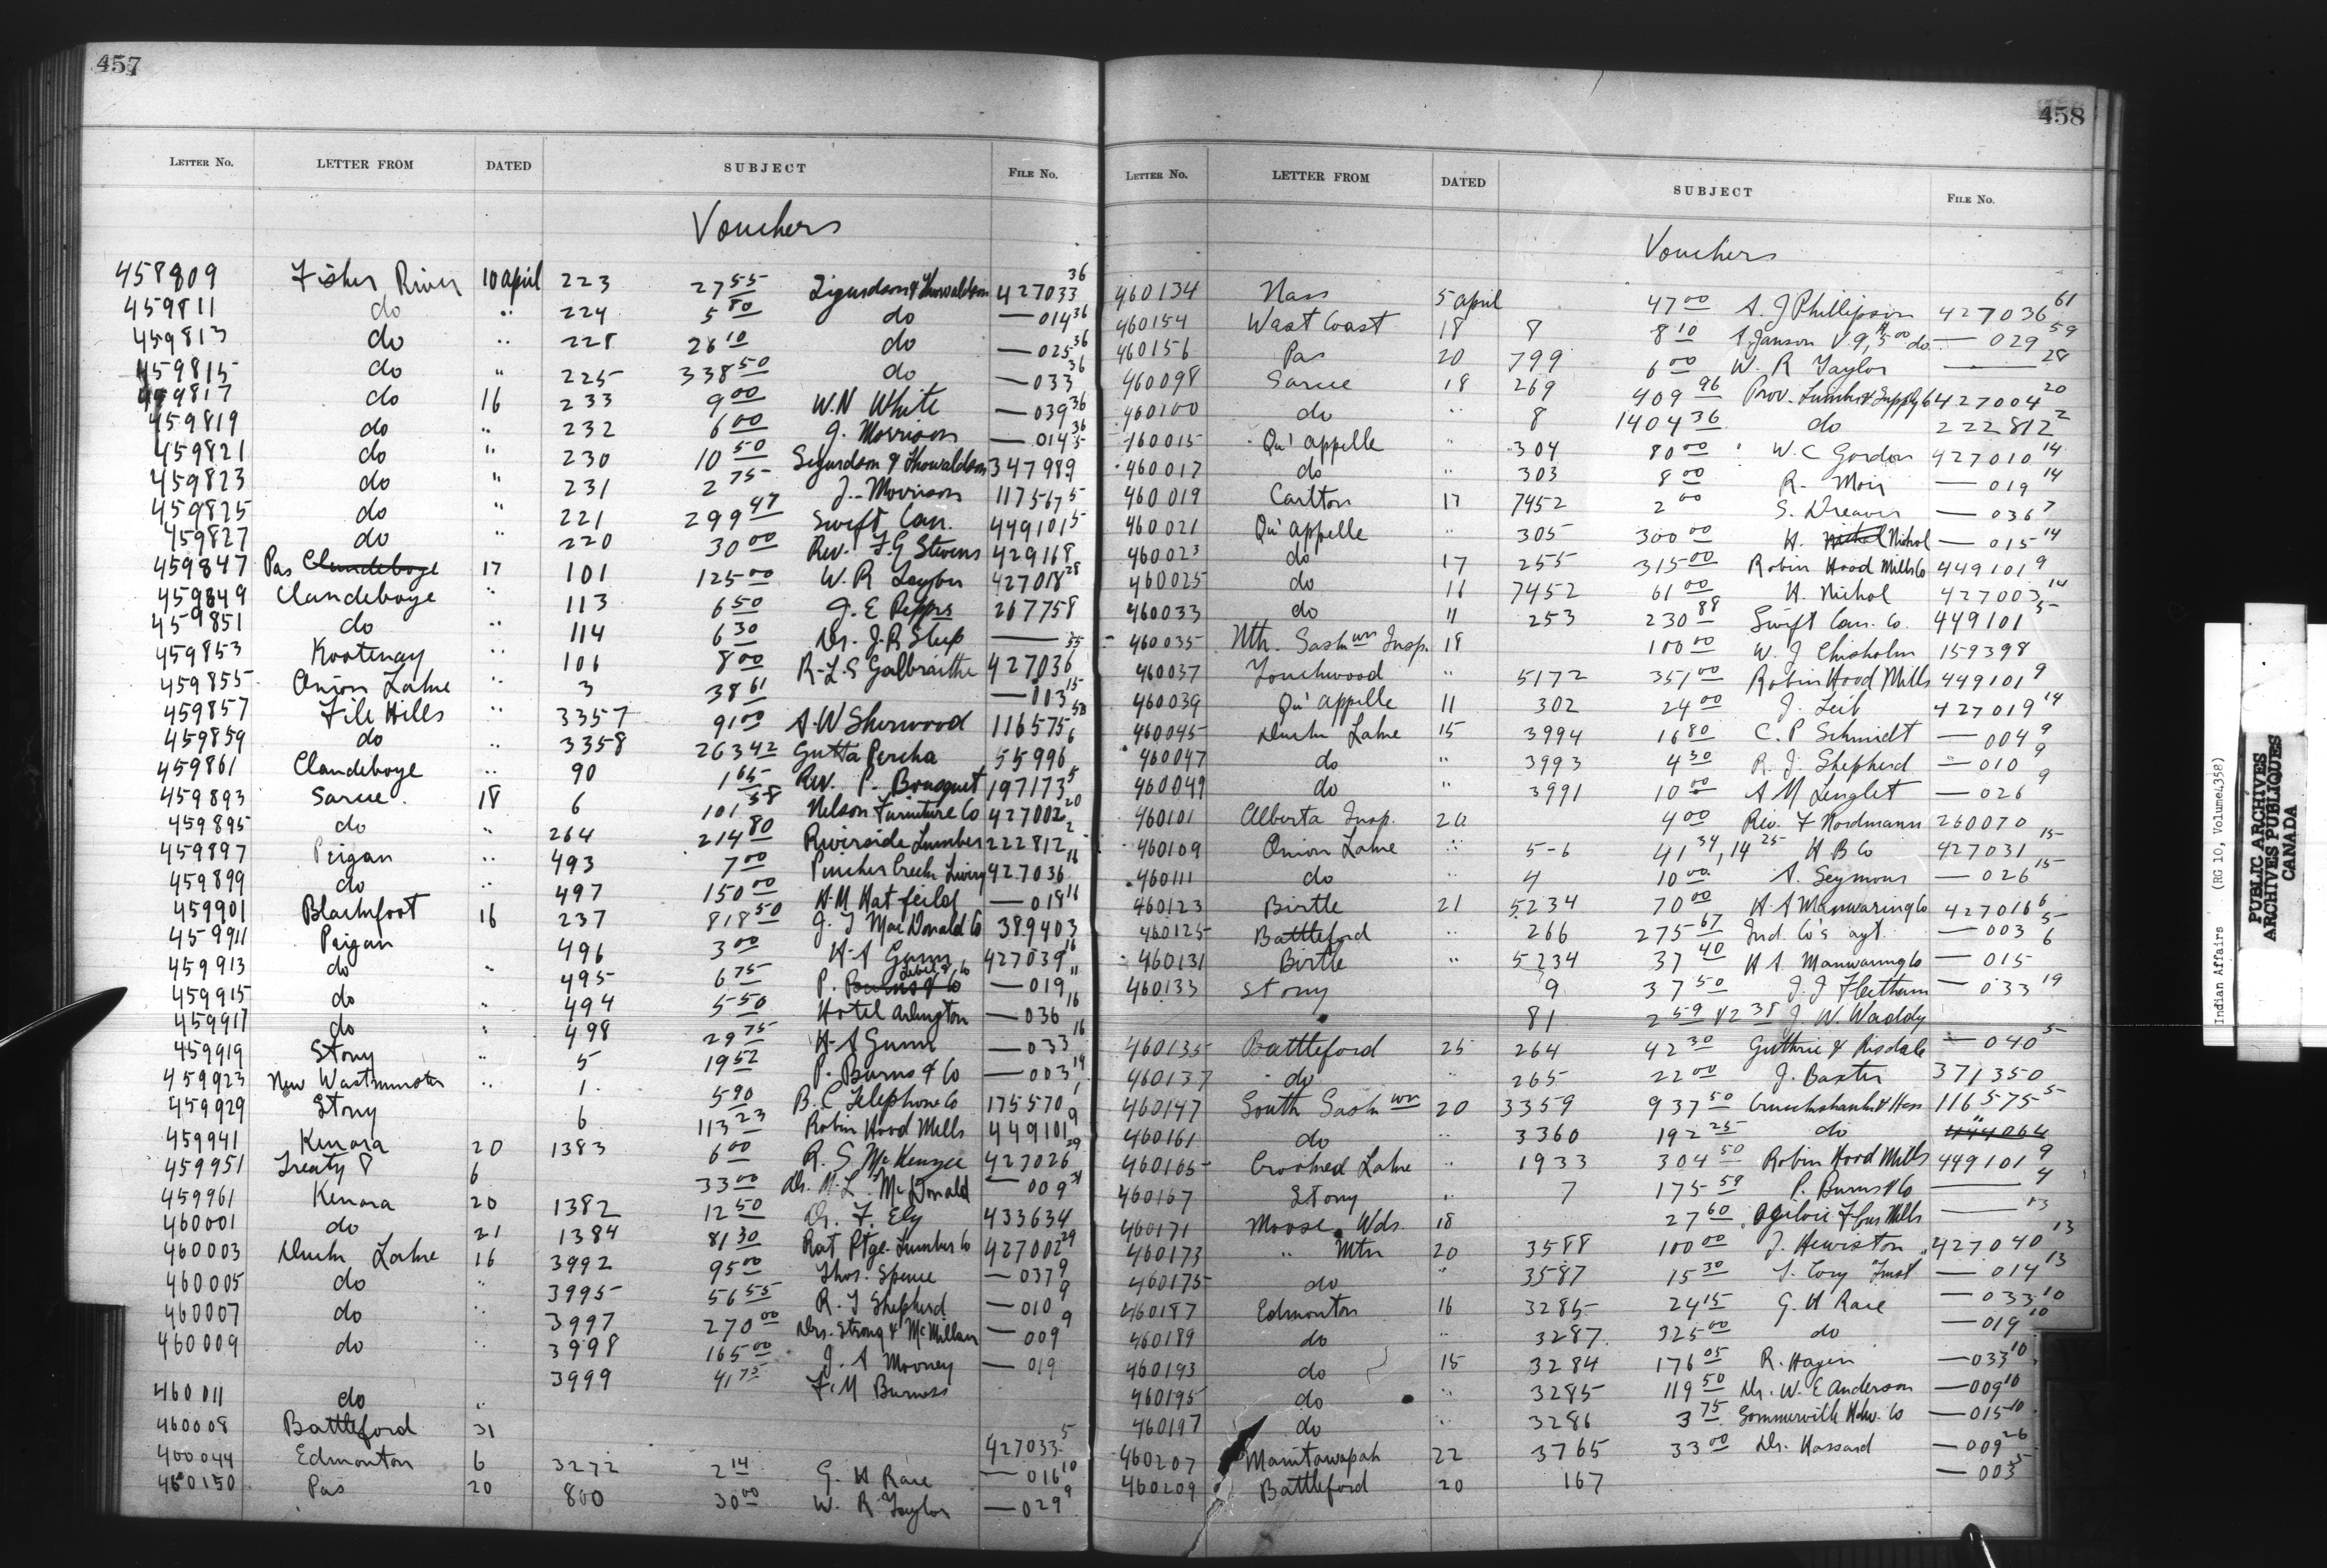 457
LETTER No. LETTER FROM DATED SUBJECT FILE No.
Vouchers
458809 Fisher River 10 April 223 27 55 Sigurdson & Thorvaldson 427033 36
459811 do " 224 5 80 do — 014 36
459813 do " 228 26 10 do — 025 36
459815 do " 225 338 50 do — 033 36
459817 do 16 233 9 00 W.N White — 039 36
459819 do " 232 6 00 J. Morrison — 014 36
459821 do " 230 10 50 Sigurdson & Thorvaldson 347989 5
459823 do " 231 2 75 J. Morrison 117567 5
459825 do " 221 299 47 Swift Can. 449101 5
459827 do " 220 30 00 Rev. F.G Stevens 429168
459847 Pas Clandeboye 17 101 125 00 W. R Taylor 427018 28
459849 Clandeboye " 113 6 50 J. E Peppers 267758
459851 do " 114 6 30 Dr. J. R Steep —
459853 Kootenay " 106 8 00 R. L. S Galbraithe 427036 35
459855 Onion Lake " 3 38 61 — 113 15
459857 File Hills " 3357 91 00 A. W Sherwood 116575 58
459859 do " 3358 263 42 Gutta Percha 55996 6
459861 Clandeboye " 90 1 65 Rev. P. Bousquet 197173 5
459893 Sarcee 18 6 101 58 Nelson Furniture Co 427002 20
459895 do " 264 214 80 Riverside Lumber 222812 2
459897 Peigan " 493 7 00 Pincher Creek Livery 427036 16
459899 do " 497 150 00 H. M Hatfeild — 018 16
459901 Blackfoot 16 237 818 50 J. T MacDonald Co 389403
459911 Peigan 496 3 00 H. A Gunn 427039 16
459913 do " 495 6 75 P. Burns & Co — 019 "
459915 do " 494 5 50 Hotel Arlington — 036 16
459917 do " 498 29 75 H. A Gunn — 033 16
459919 Stony " 5 19 52 P. Burns & Co — 003 19
459923 New Westminster " 1 5 90 B. C Telephone Co 175570 1
459929 Stony 6 113 23 Robin Hood Mills 449101 9
459941 Kenora 20 1383 6 00 R. S McKenzie 427026 29
459951 Treaty 8 6 33 00 Dr. M. L. McDonald — 009 31
459961 Kenora 20 1382 12 50 Dr. F. Ely 433634
460001 do 21 1384 81 30 Rat Ptge. Lumber Co 427002 29
460003 Duck Lake 16 3992 95 00 Thos. Spence — 037 9
460005 do " 3995 56 55 R. J Shepherd — 010 9
460007 do " 3997 270 00 Drs. Strong & McMillan — 009 9
460009 do " 3998 165 00 J. A Mooney — 019
3999 41 75 F. M Burness
460011 do "
460008 Battleford 31 427033 5
400044 Edmonton 6 3272 2 14 G. H Race — 016 10
460150 Pas 20 800 30 00 W. R Taylor — 029 9
458
LETTER No. LETTER FROM DATED SUBJECT FILE No.
Vouchers
460134 Nass 5 April 47 00 A. J Phillipson 427036 61
460154 West Coast 18 8 8 10 A. Janson V. 9, 5 00 do — 029 59
460156 Pas 20 799 6 00 W. R Taylor — 28
460098 Sarcee 18 269 409 96 Prov. Lumber & Supply Co 427004 20
460100 do " 8 1404 36 do 222812 2
460015 Qu'appelle " 304 80 00 W. C Gordon 427010 14
460017 do " 303 8 00 R. Moir — 019 14
460019 Carlton 17 7452 2 00 S. Dreaver — 036 7
460021 Qu'appelle " 305 300 00 H. Nichol Nichol — 015 14
460023 do 17 255 315 00 Robin Hood Mills Co 449101 9
460025 do 16 7452 61 00 H. Nichol 427003 14
460033 do 11 253 230 88 Swift Can. Co. 449101 5
460035 Nth. Sask wn Insp. 18 100 00 W. J Chisholm 159398
460037 Touchwood " 5172 351 00 Robin Hood Mills 449101 9
460039 Qu'appelle 11 302 24 00 J. Leib 427019 14
460045 Duck Lake 15 3994 16 80 C. P Schmidt — 004 9
460047 do " 3993 4 30 R. J. Shepherd — 010 9
460049 do " 3991 10 00 A M Lenglet — 026 9
460101 Alberta Insp. 20 4 00 Rev. F Nordmann 260070
460109 Onion Lake " 5-6 41 34, 14 25 H B Co 427031 15
460111 do " 4 10 00 A. Seymour — 026 15
460123 Birtle 21 5234 70 00 H. A Manwaring Co 427016 6
460125 Battleford " 266 275 67 Ind. Co's agt. — 003 5
460131 Birtle " 5234 37 40 H A. Manwaring Co — 015 6
460133 Stony 9 37 50 J. J Fleetham — 033 19
81 2 59 & 2 38 J W. Waddy
460135 Battleford 25 264 42 30 Guthrie & Risdale — 040 5
460137 do " 265 22 00 J. Baxter 371350
460147 South Sask wn 20 3359 937 50 Cruickshanks & Hess 116575 5
460161 do " 3360 192 25 do 444064 "
460165 Crooked Lake " 1933 304 50 Robin Hood Mills 449101 9
460167 Stony " 7 175 59 P. Burns & Co — 4
460171 Moose Wds. 18 27 60 Ogilvie Flour Mills — 13
460173 " Mtn 20 3588 100 00 J. Hewiston 427040 13
460175 do " 3587 15 30 T. Cory Trust — 014 13
460187 Edmonton 16 3285 24 15 G. H Race — 033 10
460189 do " 3287 325 00 do — 019 10
460193 do 15 3284 176 05 R. Hagen — 033 10
460195 do " 3285 119 50 Dr. W. E Anderson — 009 10
460197 do " 3286 3 75 Sommerville Hdw. Co — 015 10
460207 Manitawapah 22 3765 33 00 Dr. Hassard — 009 26
460209 Battleford 20 167 — 003 5
Indian Affairs (RG 10, Volume 4358)
PUBLIC ARCHIVES
ARCHIVES PUBLIQUES
CANADA